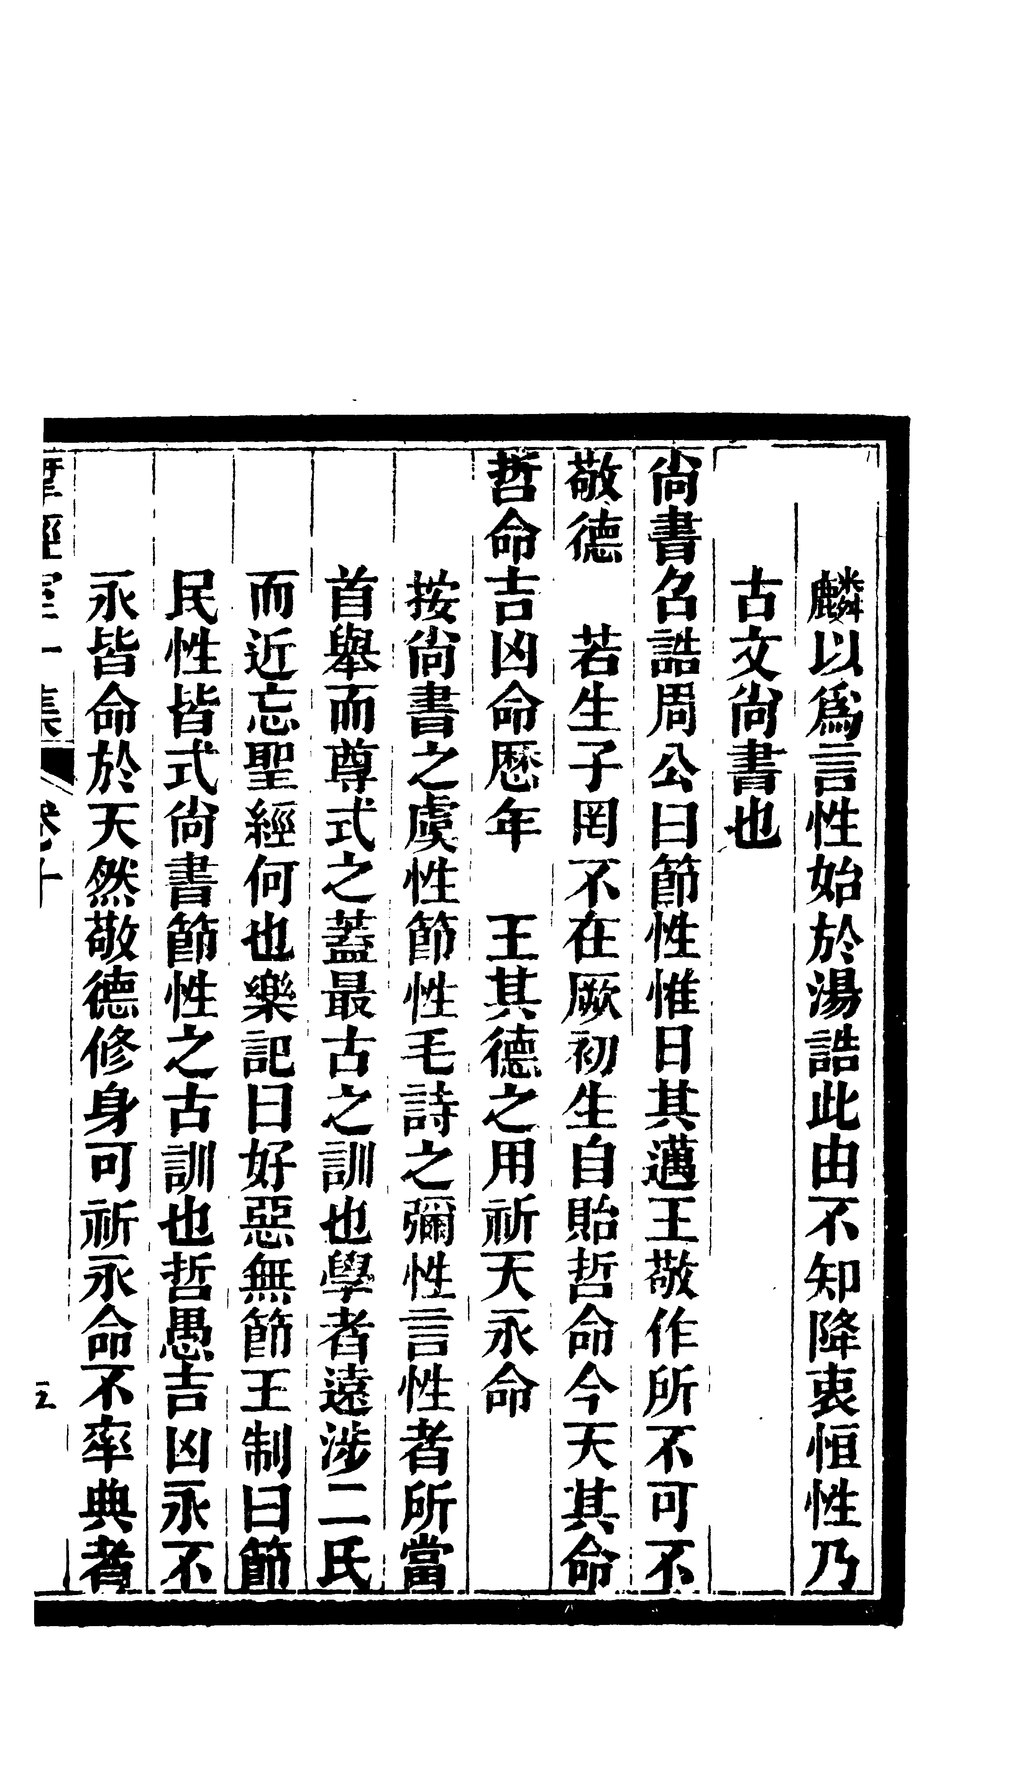 麟以爲言性始於湯誥此由不知降衷恒性乃
古文尙書也
尙書召誥周公曰節性惟日其邁王敬作所不可不
敬德　若生子罔不在厥初生自貽哲命今天其命
哲命吉凶命歷年　王其德之用祈天永命
按尙書之虞性節性毛詩之彌性言性者所當
首舉而尊式之蓋最古之訓也學者遠涉二氏
而近忘聖經何也樂記曰好惡無節王制曰節
民性皆式尙書節性之古訓也哲愚吉凶永不
永皆命於天然敬德修身可祈永命不率典者
揅經室一集　卷十　五